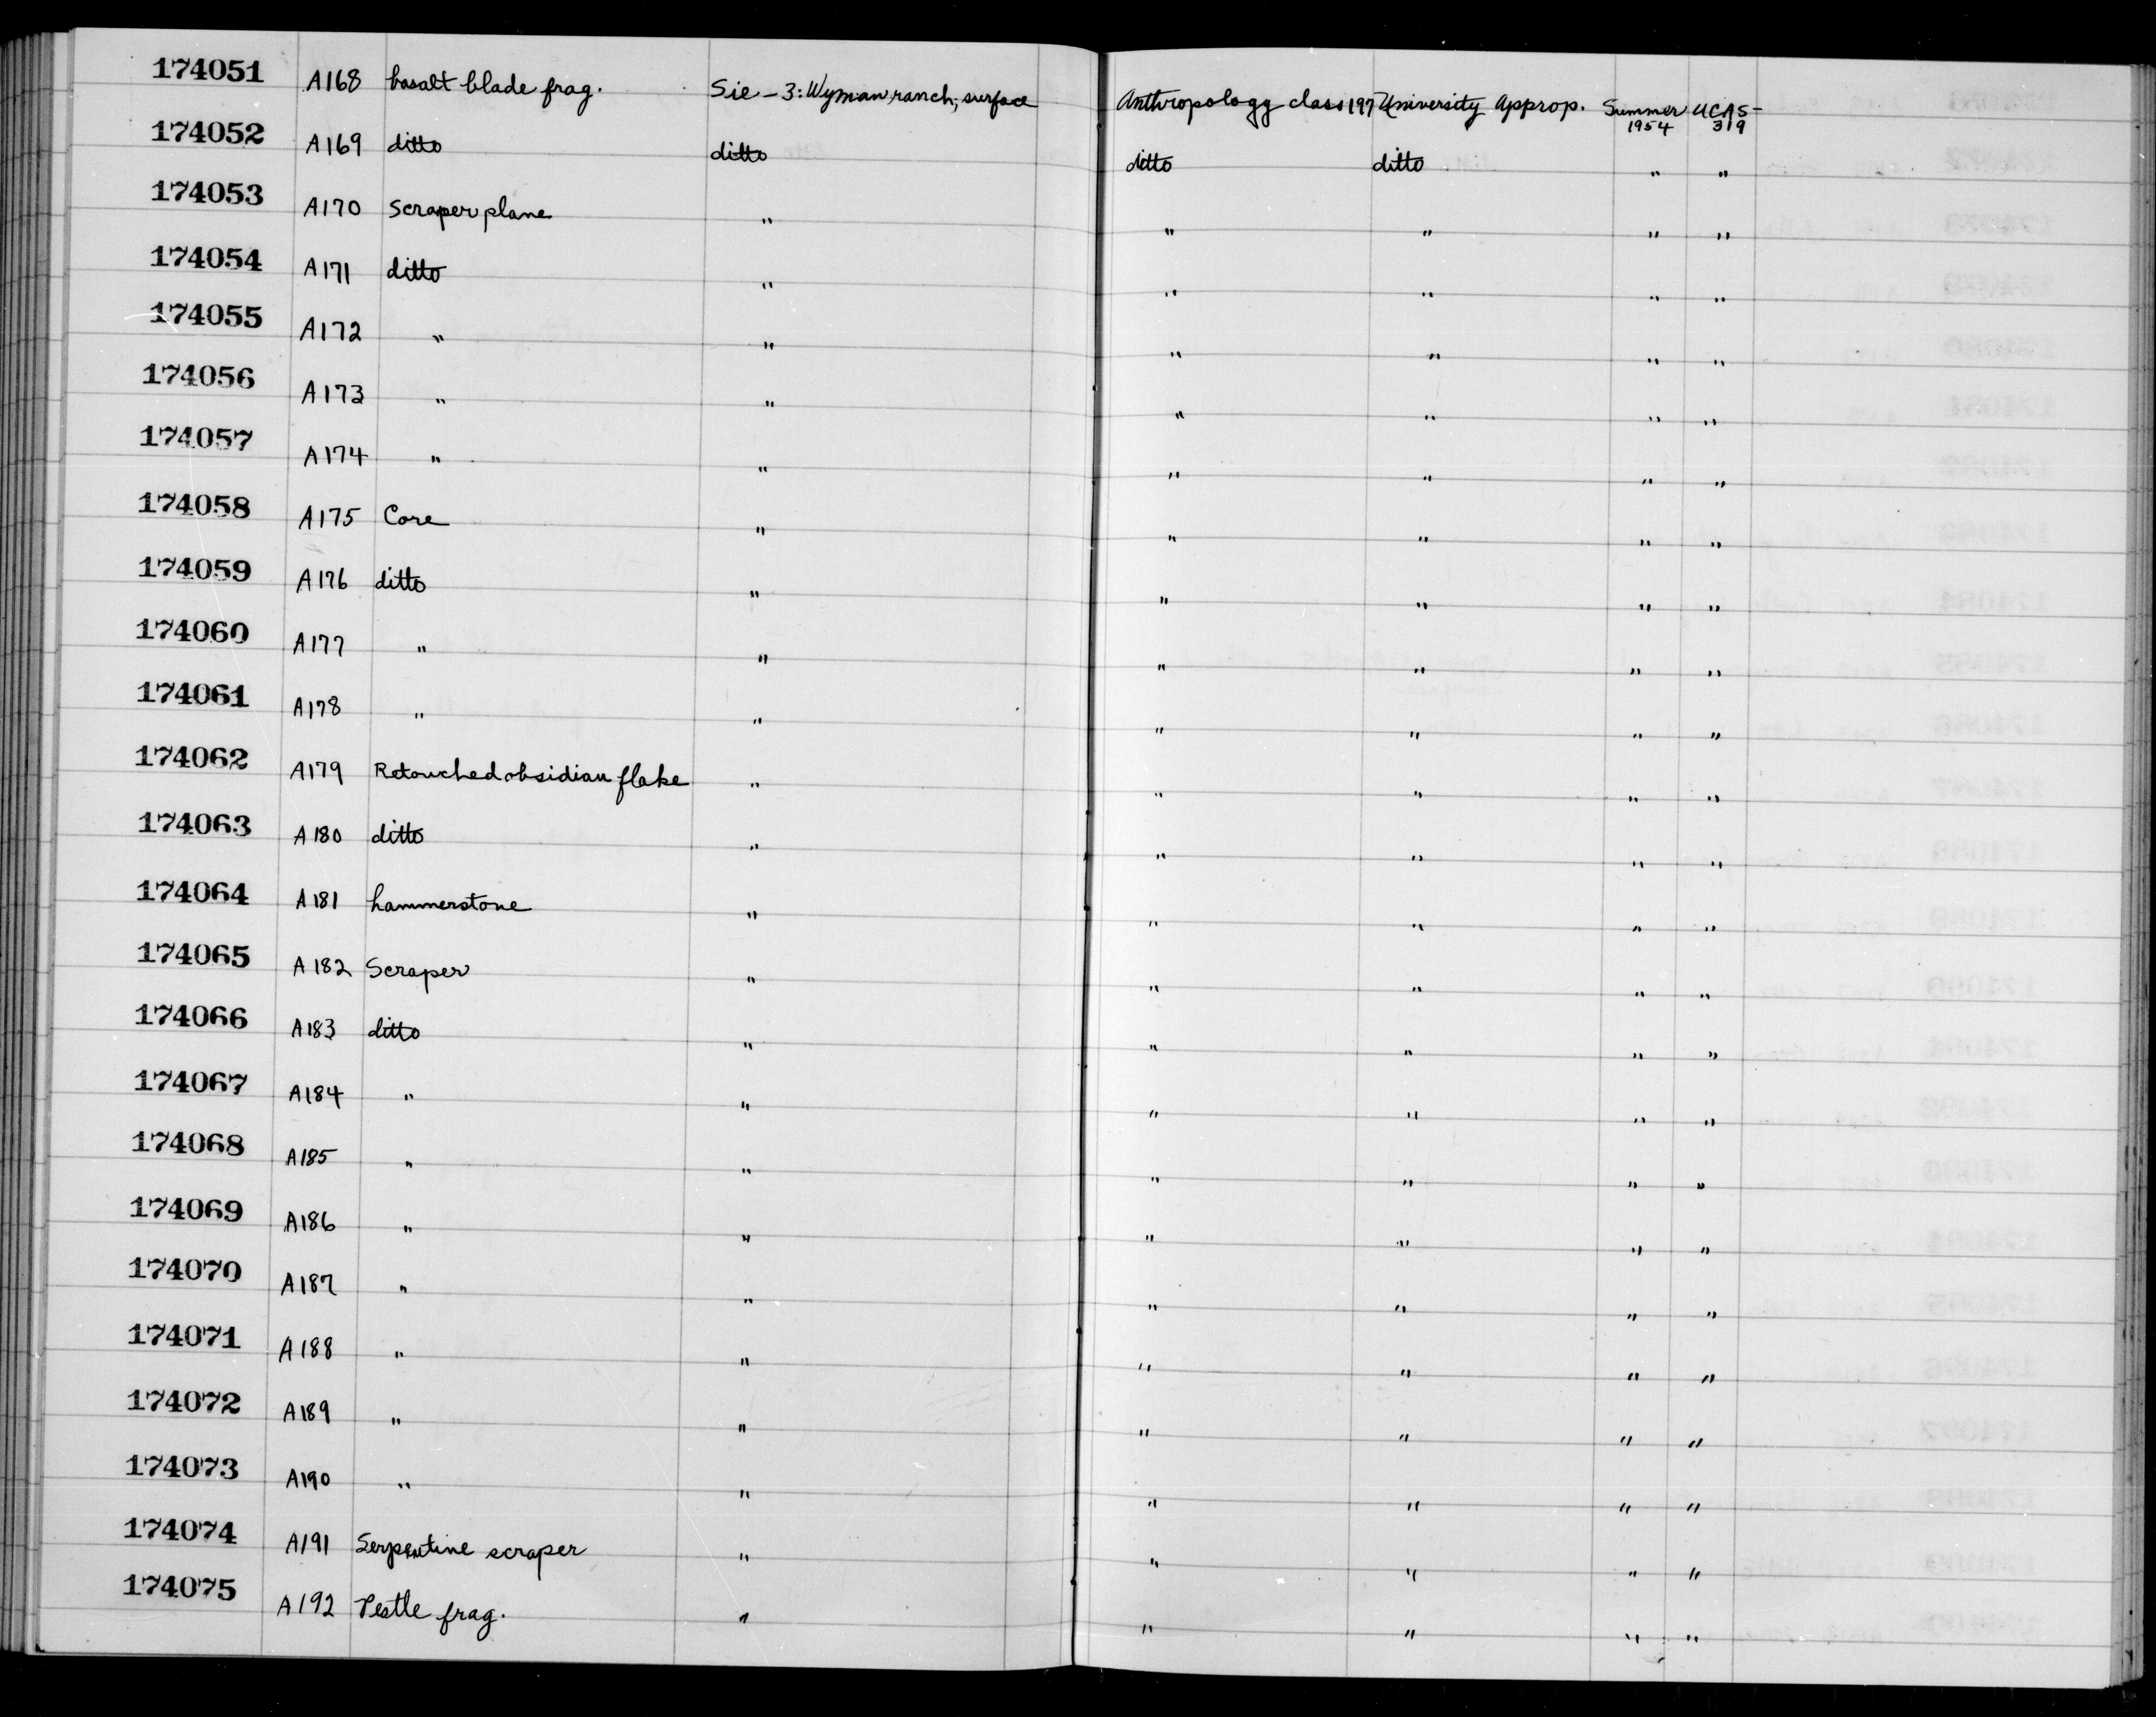 174051 A168 basalt blade frag. Sie-3: Wyman ranch; surface Anthropology class 197 University Approp. Summer 1954 UCAS-319
174052 A169 ditto ditto ditto ditto " "
174053 A170 Scraper plane " " " " "
174054 A171 ditto " " " " "
174055 A172 " " " " " "
174056 A173 " " " " " "
174057 A174 " " " " " "
174058 A175 Core " " " " "
174059 A176 ditto " " " " "
174060 A177 " " " " " "
174061 A178 " " " " " "
174062 A179 Retouched obsidian flake " " " " "
174063 A180 ditto " " " " "
174064 A181 hammerstone " " " " "
174065 A182 Scraper " " " " "
174066 A183 ditto " " " " "
174067 A184 " " " " " "
174068 A185 " " " " " "
174069 A186 " " " " " "
174070 A187 " " " " " "
174071 A188 " " " " " "
174072 A189 " " " " " "
174073 A190 " " " " " "
174074 A191 Serpentine scraper " " " " "
174075 A192 Pestle frag. " " " " "